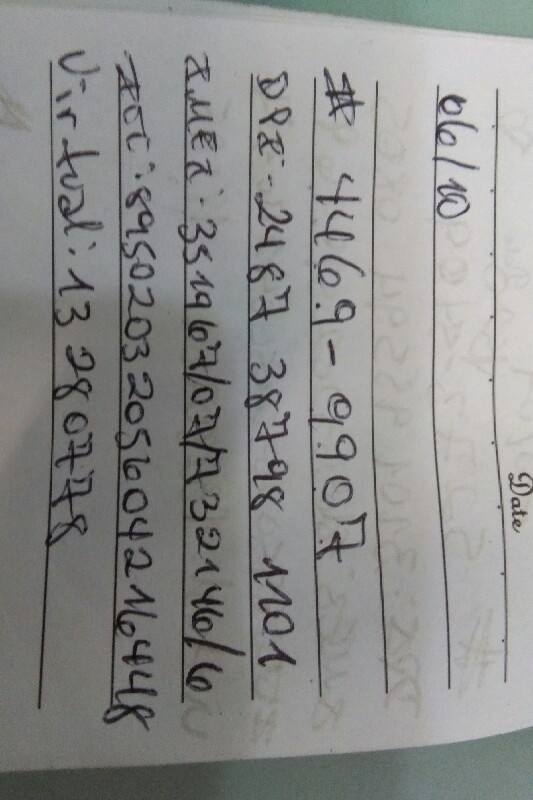 Date
06/10
# 4469-9907
DPI - 2487 38798 1101
IMEI: 351967/07/732146/6
ICC: 8950203205604216448
Virtual: 13280778